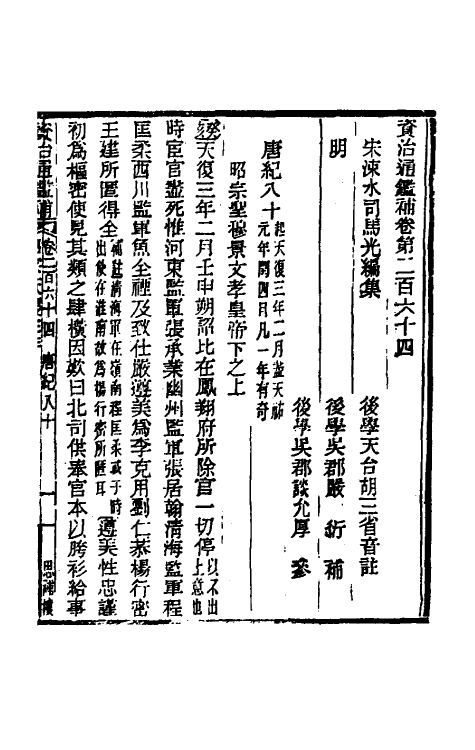 資治通鑑補卷第二百六十四
宋涑水司馬光編集
後學天台胡三省音註
明
後學吳郡嚴衍補
後學吳郡談允厚參
唐紀八十起天復三年二月盡天祐元年閏四月凡一年有奇
昭宗聖穆景文孝皇帝下之上
癸亥天復三年二月壬申朔詔比在鳳翔府所除官一切停以不出上意也
時宦官盡死惟河東監軍張承業幽州監軍張居翰清海監軍程
匡柔西川監軍魚全禋及致仕嚴遵美爲李克用劉仁恭楊行密
王建所匿得全補註清海軍在嶺南程匡柔或于時出使在淮南故爲楊行密所匿耳遵美性忠謹
初爲樞密使見其類之肆橫因歎曰北司供奉官本以胯衫給事
資治通鑑補 卷二百六十四 唐紀八十 一 思補樓